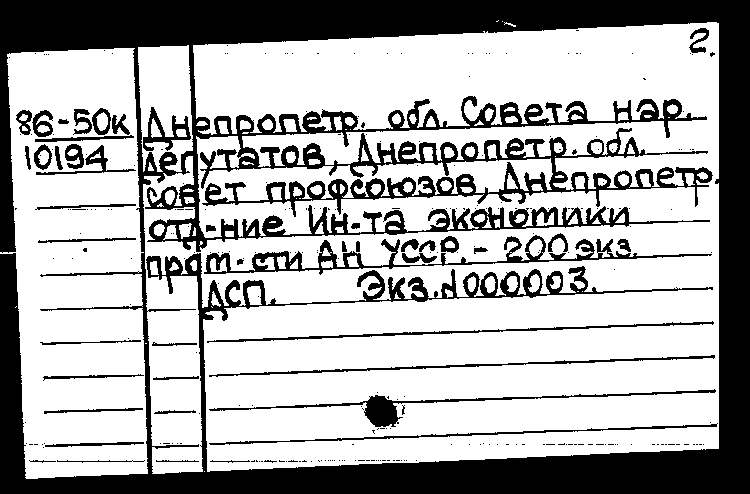 2.
86-50к Днепропетр. обл. Совета нар.
10194 депутатов, Днепропетр. обл.
совет профсоюзов, Днепропетр.
отд-ние Ин-та экономики
пром-сти АН УССР. - 200 экз.
ДСП. Экз. N000003.